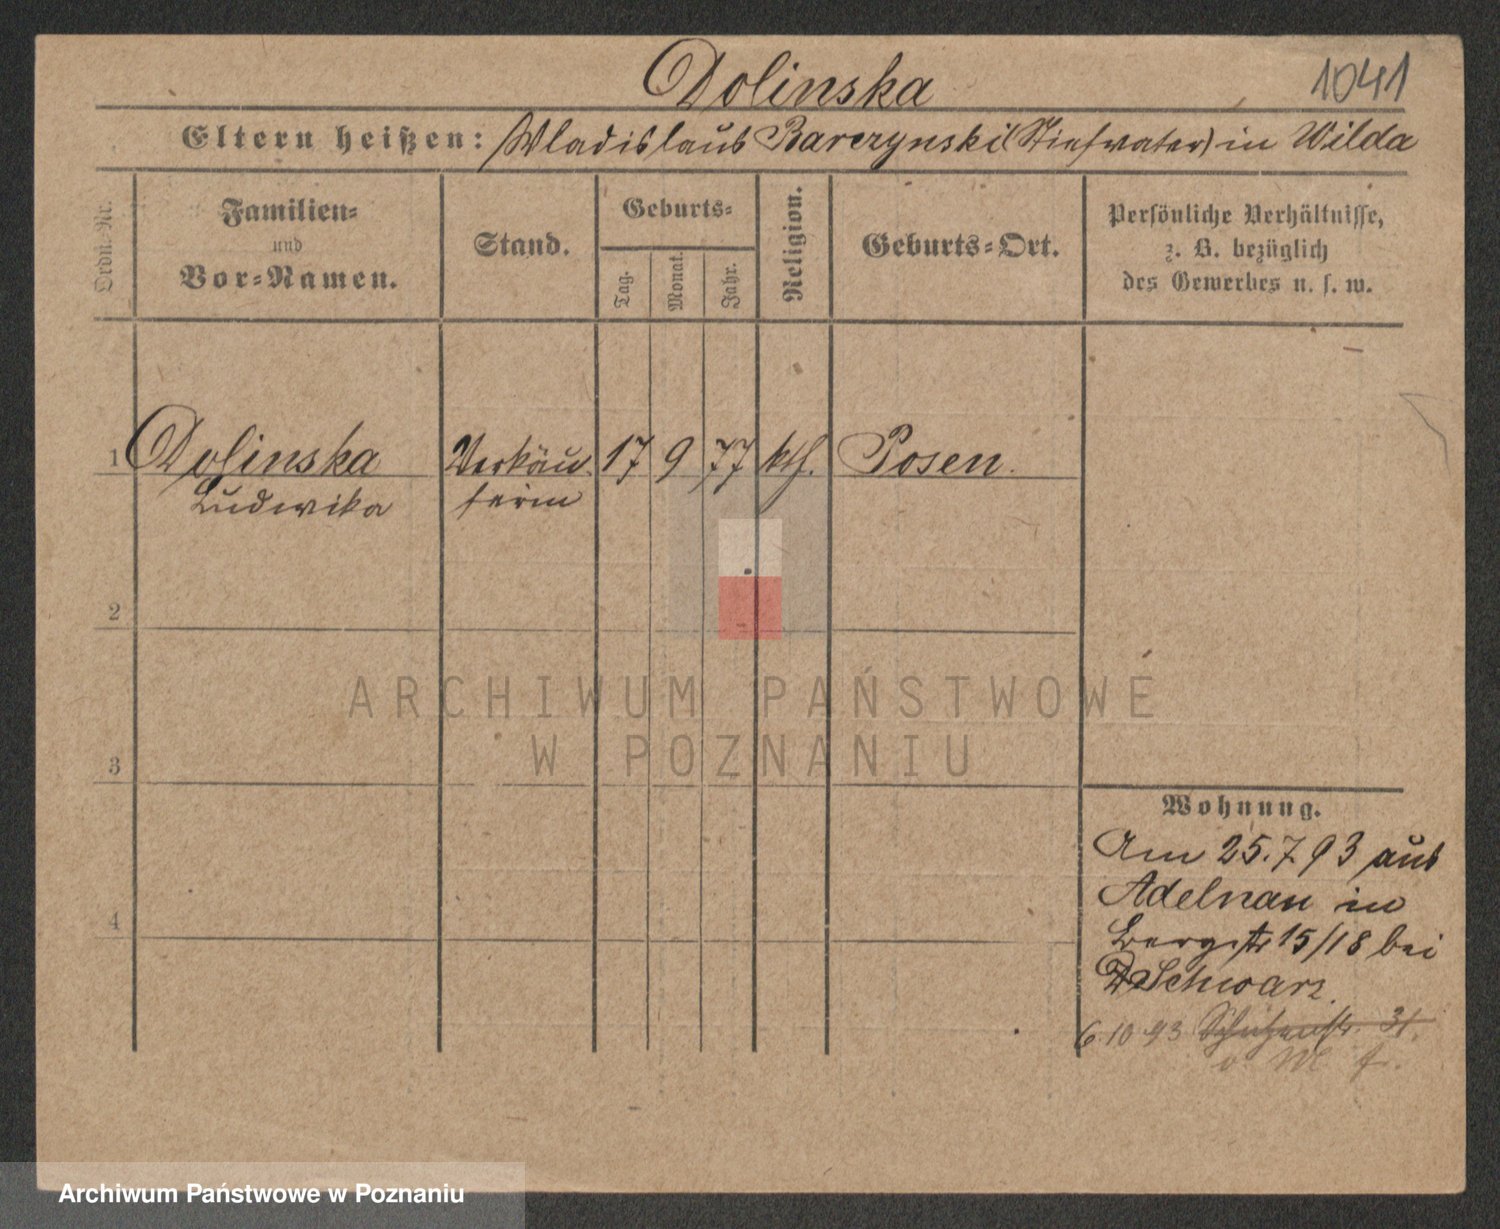 Dolinska
1041
Eltern heißen: Wladislaus Barczynski (Stiefvater) in Wilda
Ordn.-Nr.
Familien-
und
Vor-Namen.
Stand.
Geburts-
Tag.
Monat.
Jahr.
Religion.
Geburts-Ort.
Persönliche Verhältnisse,
z. B. bezüglich
des Gewerbes u. s. w.
1 Dolinska Verkäu 17 9 77 kth. Posen.
Ludwika ferin
2
ARCHIWUM PAŃSTWOWE
W POZNANIU
3
Wohnung.
Am 25.7.93 aus
Adelnau in
4
Bergstr 15/18 bei
Schwarz.
6.10.93 Schützenstr. 31.
Archiwum Państwowe w Poznaniu